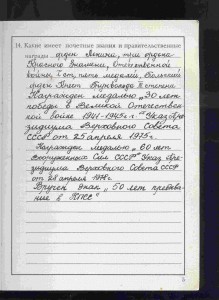 14. Какие имеет почетные звания и правительственные
награды орден Ленина, три ордена
Красного Знамени, Отечественной
войны I ст, пять медалей, Польский
орден Крест Вир­ Милитари V степени
Награжден медалью „30 лет
победы в Великой Отечествен
ной войне 1941-1945 г." Указ Пре
зидиума Верховного Совета
СССР от 25 апреля 1975г.
Награжден медалью „60 лет
Вооруженных Сил СССР" Указ Пре
зидиума Верховного Совета СССР
от 28 апреля 1978г
Вручен Знак „50 лет пребыва
ние в КПСС"